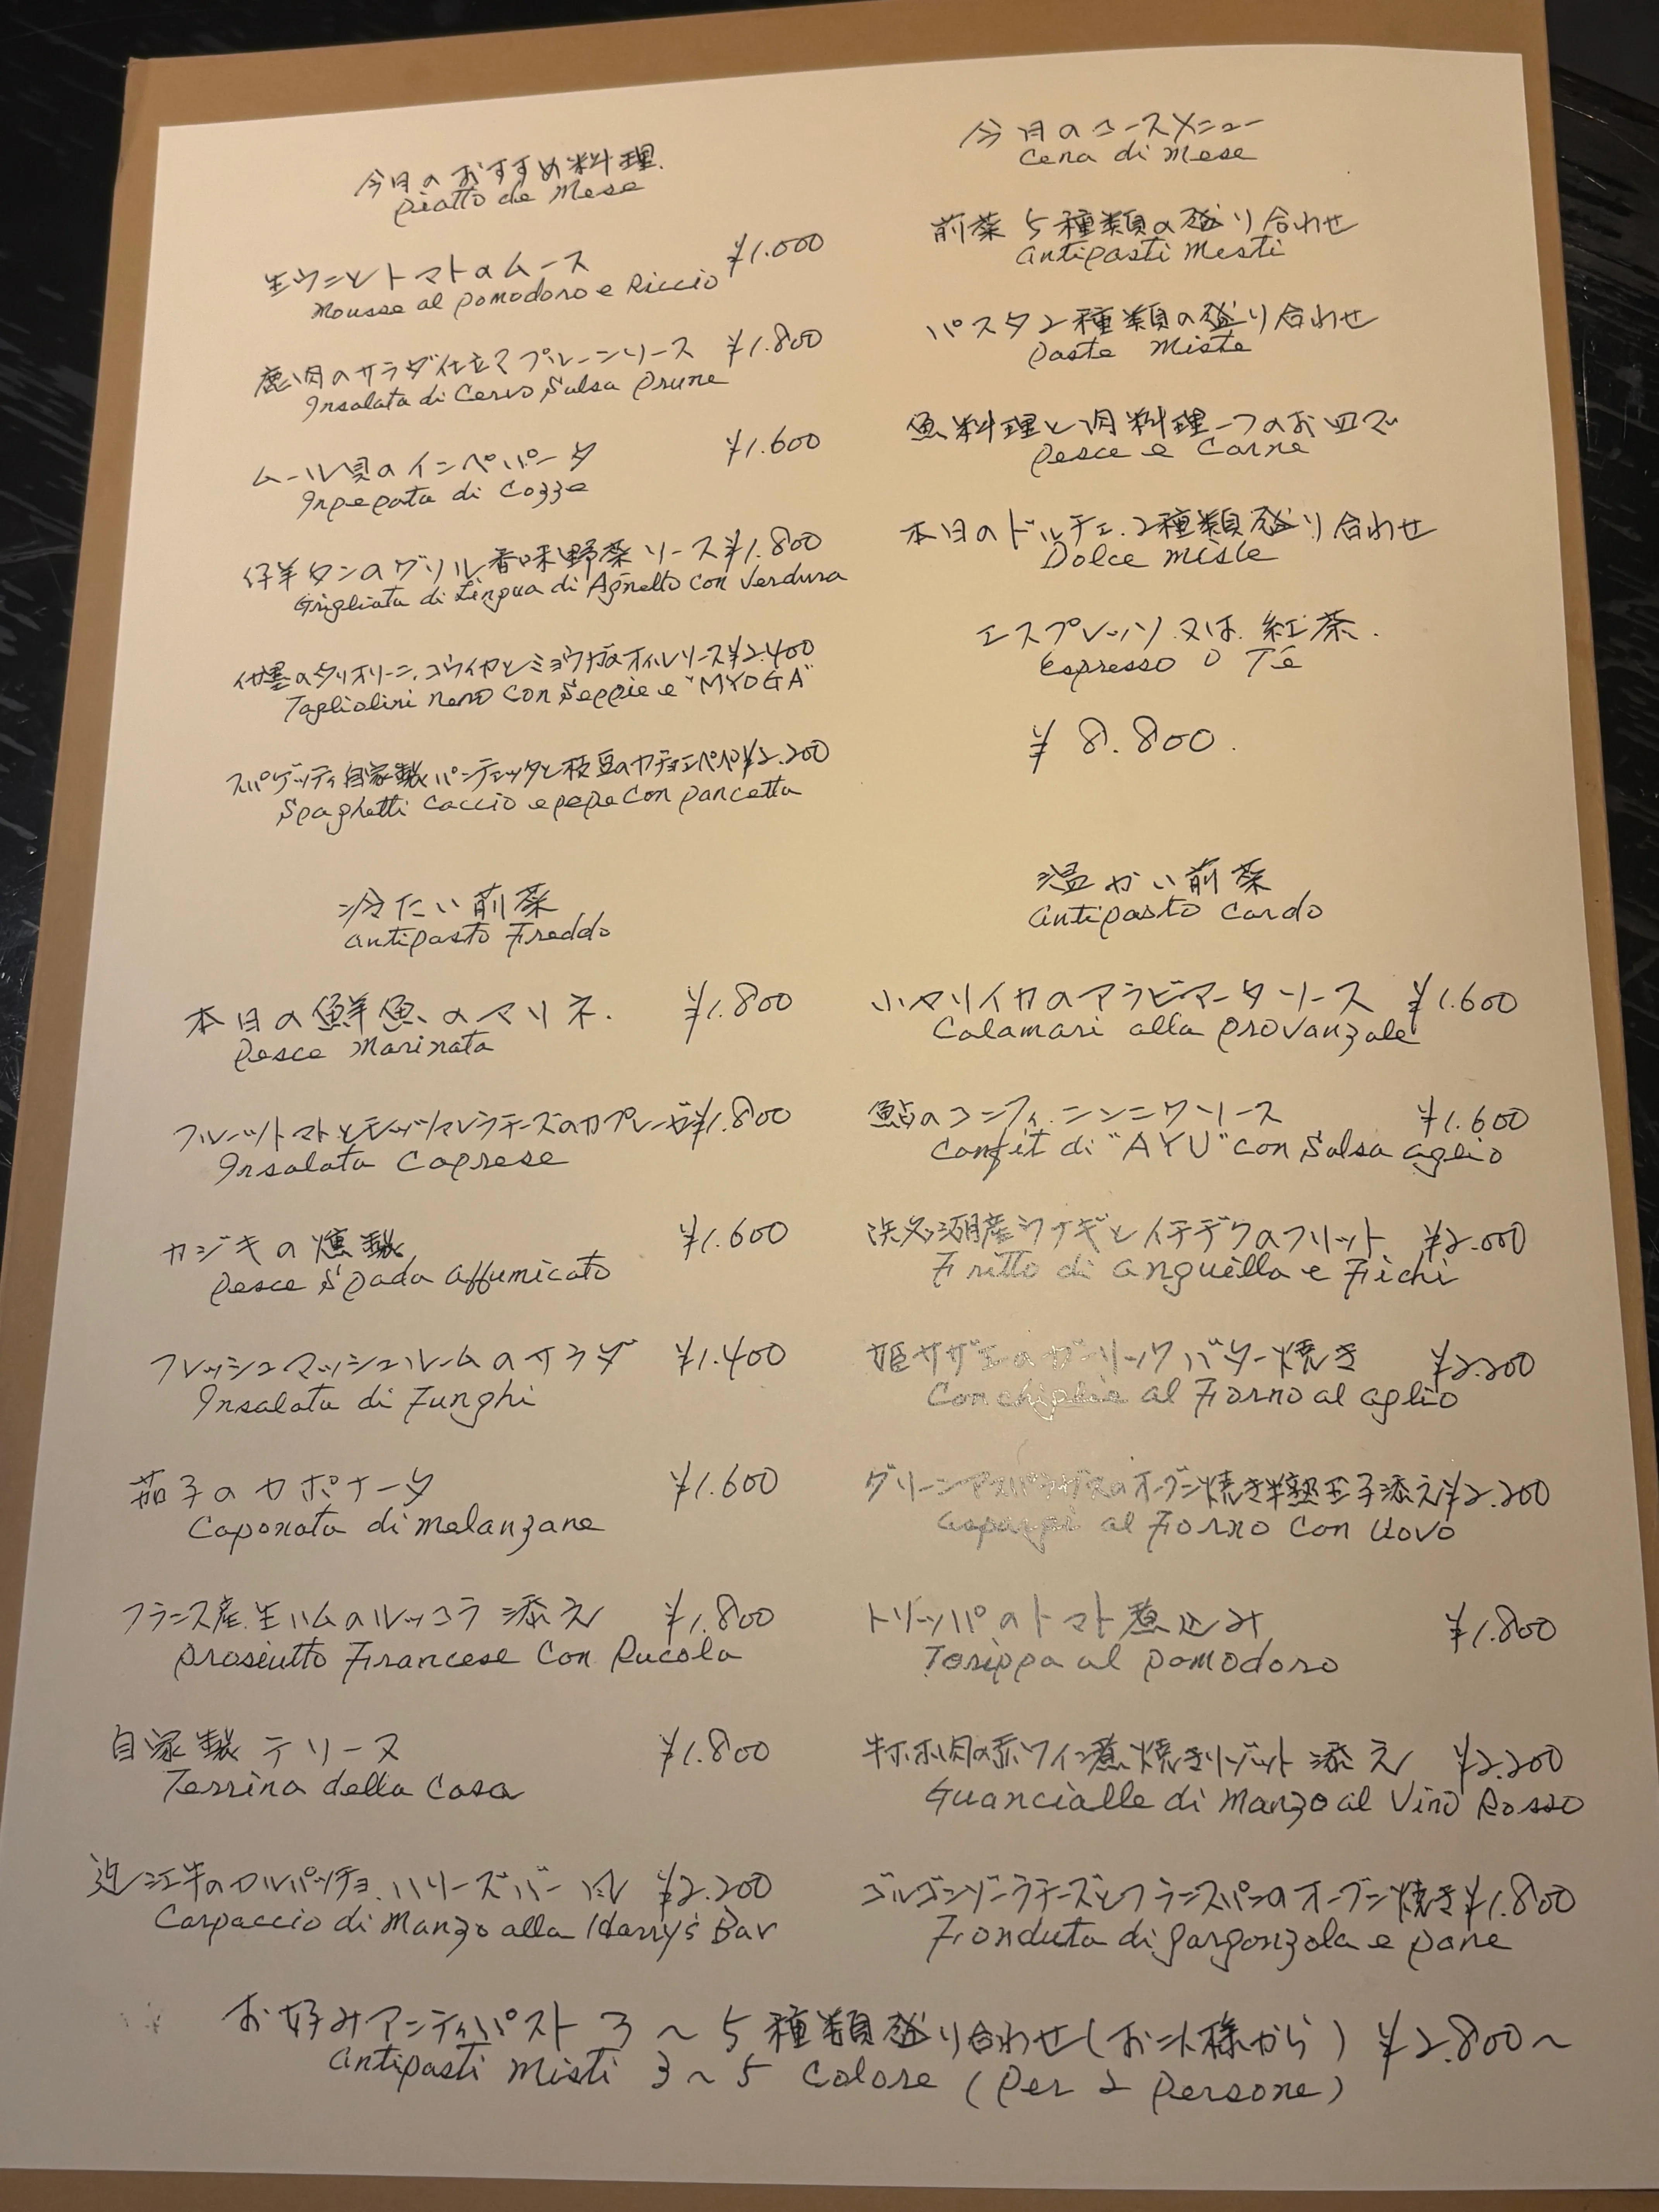 今月のおすすめ料理.
piatto de Mese
生ウニとトマトのムース ¥1.000
Mousse al pomodoro e Riccio
鹿肉のサラダ仕立てプルーンソース ¥1.800
Insalata di Cervo Salsa prune
ムール貝のインペパータ ¥1.600
Inpepata di Cozze
仔羊タンのグリル香味野菜ソース ¥1.800
Grigliata di Lingua di Agnello con Verdura
イカ墨のタリオリーニ.コウイカとミョウガのオイルソース ¥2.400
Tagliolini nero con Seppie e "MYOGA"
スパゲッティ自家製パンチェッタと枝豆のカチョエペペ ¥2.200
Spaghetti Caccio e pepe con pancetta
今月のコースメニュー
Cena di Mese
前菜5種類の盛り合わせ
antipasti Misti
パスタ2種類の盛り合わせ
Paste Miste
魚料理と肉料理一つのお皿で
Pesce e Carne
本日のドルチェ.2種類盛り合わせ
Dolce Miste
エスプレッソ.又は.紅茶.
espresso o Té
¥8.800.
冷たい前菜
antipasto Freddo
本日の鮮魚のマリネ. ¥1.800
Pesce Marinata
フルーツトマトとモッツァレラチーズのカプレーゼ ¥1.800
Insalata Caprese
カジキの燻製 ¥1.600
Pesce Spada affumicato
フレッシュマッシュルームのサラダ ¥1.400
Insalata di Funghi
茄子のカポナータ ¥1.600
Caponata di melanzane
フランス産.生ハムのルッコラ添え ¥1.800
prosciutto Francese Con Rucola
自家製テリーヌ ¥1.800
Terrina della Casa
近江牛のカルパッチョ.ハリーズバー風 ¥2.200
Carpaccio di Manzo alla Harry's Bar
温かい前菜
antipasto Cardo
小ヤリイカのアラビアータソース ¥1.600
Calamari alla provanzale
鮎のコンフィ.ニンニクソース ¥1.600
Confit di "AYU" con Salsa aglio
浜名湖産ウナギとイチヂクのフリット ¥2.000
Fritto di anguilla e Fichi
姫サザエのガーリックバター焼き ¥2.200
Conchiglie al Forno al aglio
グリーンアスパラガスのオーブン焼き半熟玉子添え ¥2.200
asparagi al Forno Con Uovo
トリッパのトマト煮込み ¥1.800
Torippa al pomodoro
牛ホホ肉の赤ワイン煮焼きリゾット添え ¥2.200
Guancialle di Manzo al Vino Rosso
ゴルゴンゾーラチーズとフランスパンのオーブン焼き ¥1.800
Fonduta di gorgonzola e pane
お好みアンティパスト3〜5種類盛り合わせ(お二人様から) ¥2.800〜
antipasti Misti 3〜5 Colore (Per 2 Persone)